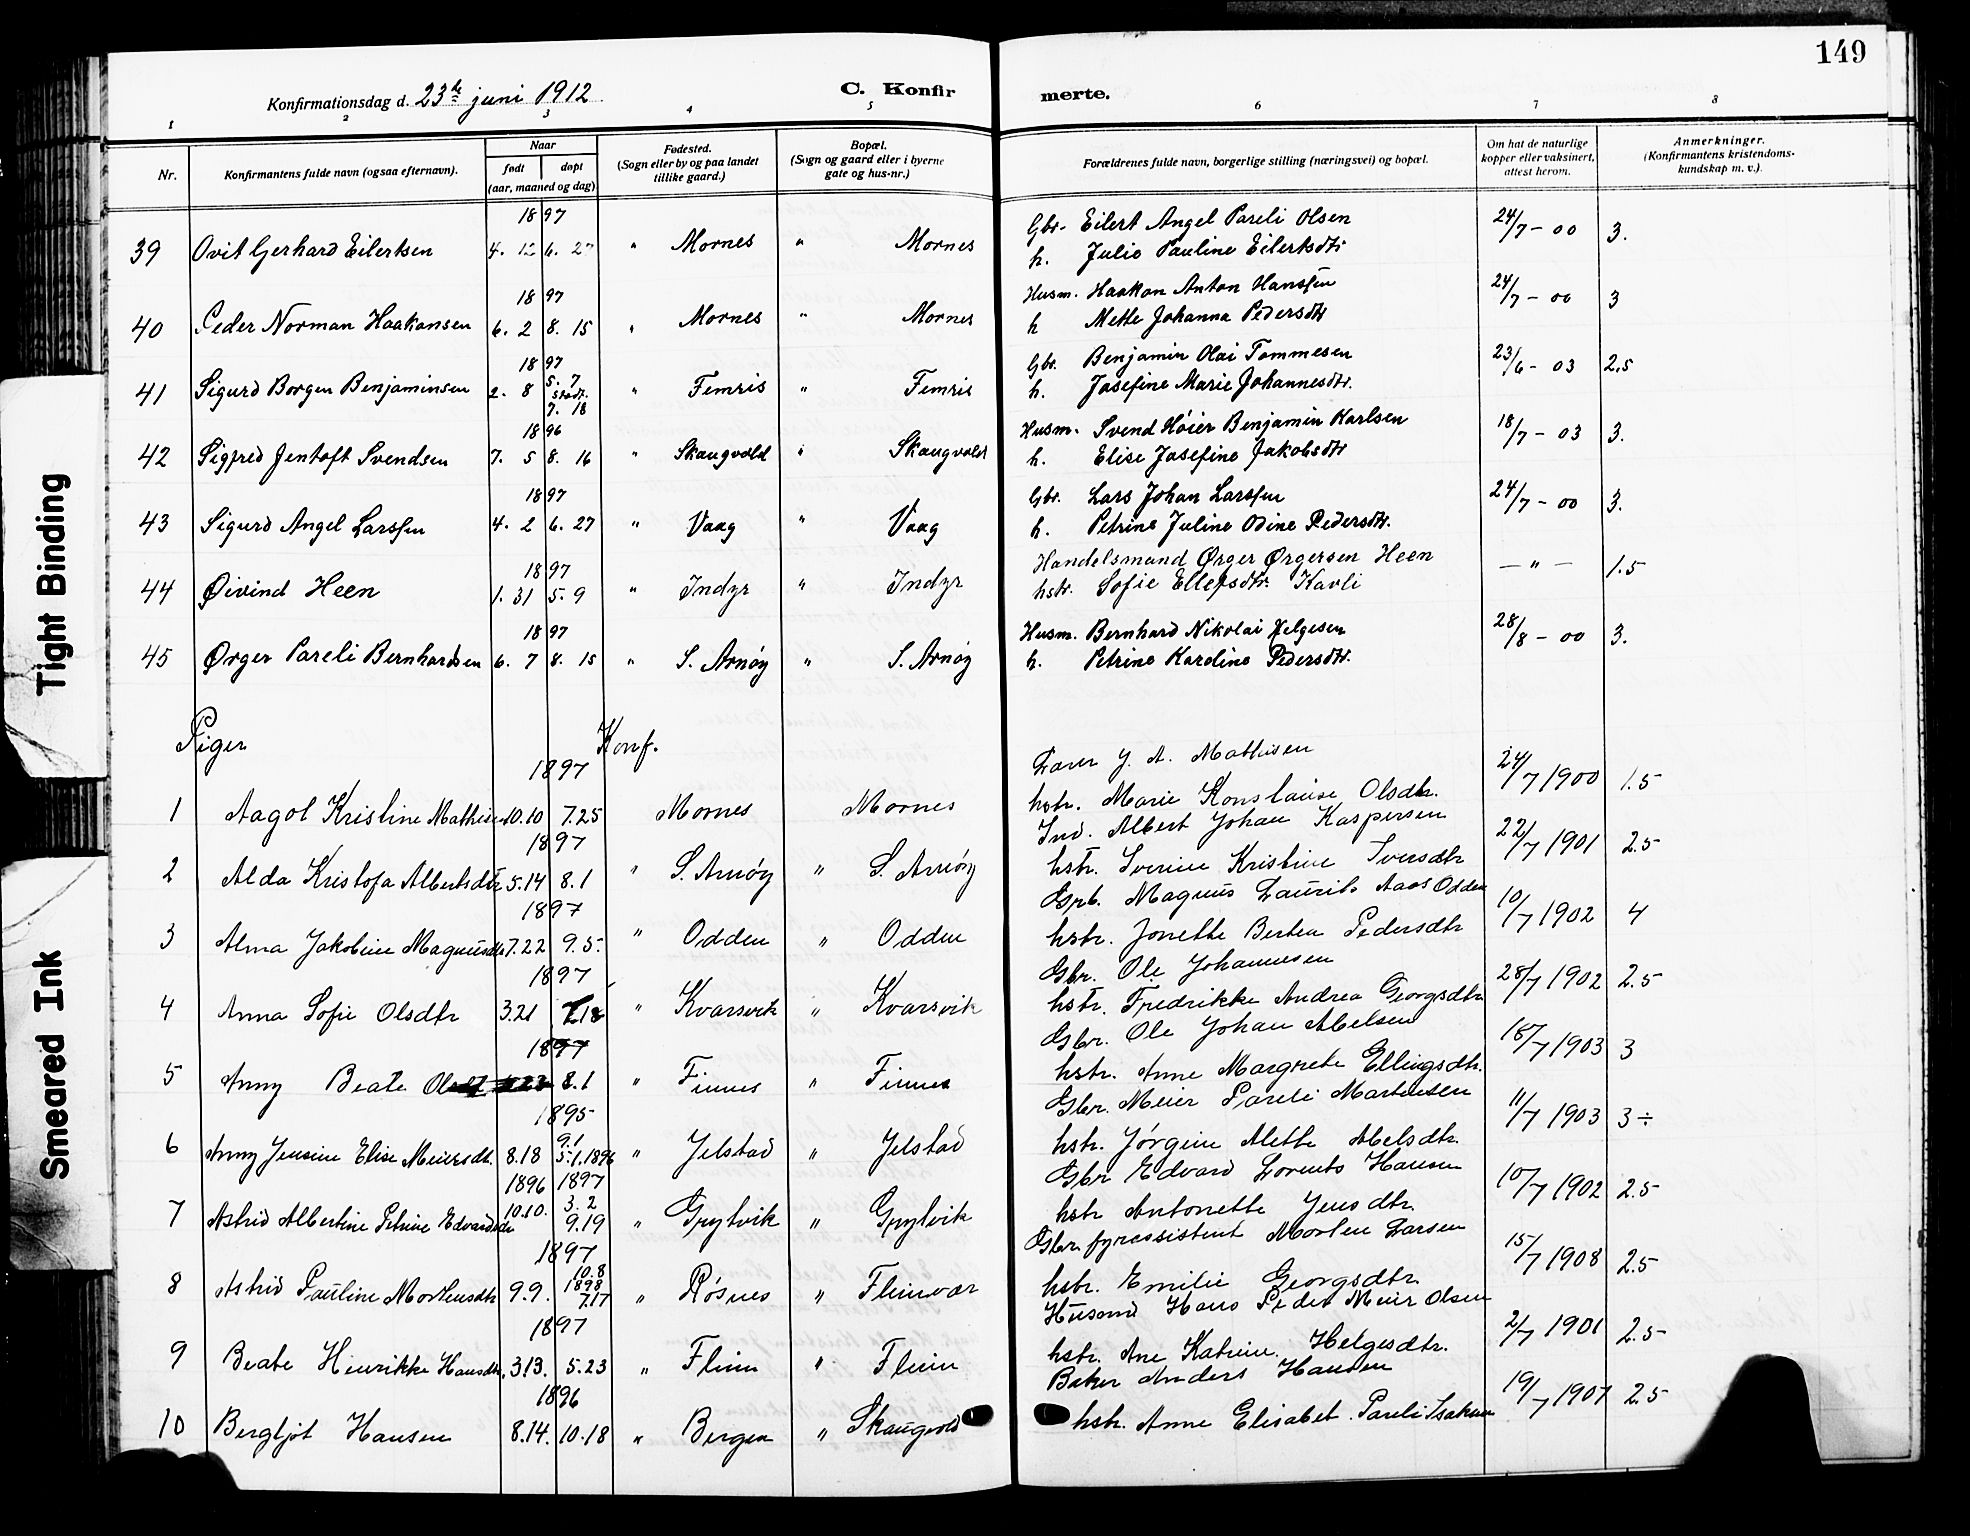 149
Konfirmationsdag d. 23de juni 1912. C. Konfirmerte.
1 2 3 4 5 6 7 8
Nr. Konfirmantens fulde navn (ogsaa efternavn). Naar født døpt (aar, maaned og dag) Fødested. (Sogn eller by og paa landet tillike gaard.) Bopæl. (Sogn og gaard eller i byerne gate og hus-nr.) Forældrenes fulde navn, borgerlige stilling (næringsvei) og bopæl. Om hat de naturlige kopper eller vaksinert, attest herom. Anmerkninger. (Konfirmantens kristendomskundskap m. v.).
1897 Gbr. Eilert Angel Pareli Olsen 24/7 - 00 3.
39 Ovit Gerhard Eilertsen 4. 12 6. 27 " Mornes " Mornes h. Julie Pauline Eilertsdtr
1897 Husm. Haakon Anton Hanssen 24/7 - 00 3
40 Peder Norman Haakonsen 6. 2 8. 15 " Mornes " Mornes h Mette Johanna Pedersdtr
1897 Gbr. Benjamin Olai Tommesen 23/6 - 03 2,5
41 Sigurd Borgen Benjaminsen 2. 8 5. 7 stadf. 7. 18 " Femris " Femris h. Josefine Marie Johannesdtr.
1896 Husm. Svend Høier Benjamin Karlsen 18/7 - 03 3.
42 Sigfred Jentoft Svendsen 7. 5 8. 16 " Skaugvold " Skaugvold h. Elise Josefine Jakobsdtr
1897 Gbr. Lars Johan Larssen 24/7 - 00 3.
43 Sigurd Angel Larssen 4. 2 6. 27 " Vaag " Vaag h. Petrine Juline Odine Pedersdtr.
1897 Handelsmand Ørger Ørgersen Heen — " — 1.5
44 Øivind Heen 1. 31 5. 9 " Indyr " Indyr hstr. Sofie Ellefsdtr. Kavli
1897 Husm. Bernhard Nikolai Helgesen 28/8 - 00 3.
45 Ørger Pareli Bernhardsen 6. 7 8. 15 " S. Arnøy " S. Arnøy h. Petrine Kardine Pedersdtr.
Piger Konf.
1897 Lærer J. A. Mathisen 24/7 1900 1.5
1 Aagot Kristine Mathisen 10.10 7.25 Mornes Mornes hstr. Marie Konstanse Olsdtr.
1897 Ind. Albert Johan Kaspersen 22/7 1901 2.5
2 Alda Kristofa Albertsdtr 5.14 8.1 " S. Arnøy " S. Arnøy hstr. Sverine Kristine Iversdtr
1897 Gbr. Magnus Laurits Aas Odden 10/7 1902 4
3 Alma Jakobine Magnusdtr 7.22 9.5. " Odden " Odden hstr. Jonette Bertea Pedersdtr
1897 Gbr. Ole Johannesen 28/7 1902 2.5
4 Anna Sofie Olsdtr 3.21 7.18 " Kvarsvik " Kvarsvik hstr. Fredrikke Andrea Georgsdtr
1897 Gbr. Ole Johan Abelsen 18/7 1903 3
5 Anny Beate 8.1 " Finnes " Finnes hstr. Anne Margrete Ellingsdtr.
1895 Gbr. Meier Pareli Martinsen 11/7 1903 3÷
6 Anny Jensine Elise Meiersdtr. 8.18 9.1 5.1.1896 " Jelstad " Jelstad hstr. Jørgine Alette Abelsdtr.
1896 1897 Gbr Edvard Lorents Hansen 10/7 1902 2.5
7 Astrid Albertine Petrine Edvardsdtr 10.10. 3.2 9.19 " Grytvik " Grytvik hstr Antonette Jensdtr.
1897 Gbr fyrassistent Morten Larsen 15/7 1908 2.5
8 Astrid Pauline Mortensdtr 9.9. 10.8 1898 7.17 " Røsnes " Fleinvær hstr. Emilie Georgsdtr.
1897 Husmd Hans Peder Meier Olsen 2/7 1901 2.5
9 Beate Henrikke Hansdtr. 3.13. 5.23 " Flein " Flein hstr. Ane Katrine Helgesdtr.
1896 Baker Anders Hansen 19/7 1907 2.5
10 Bergljot Hansen 8.14. 10.18 " Bergen " Skaugvold hstr. Anne Elisabet Pareli Isaksen
Tight Binding
Smeared Ink